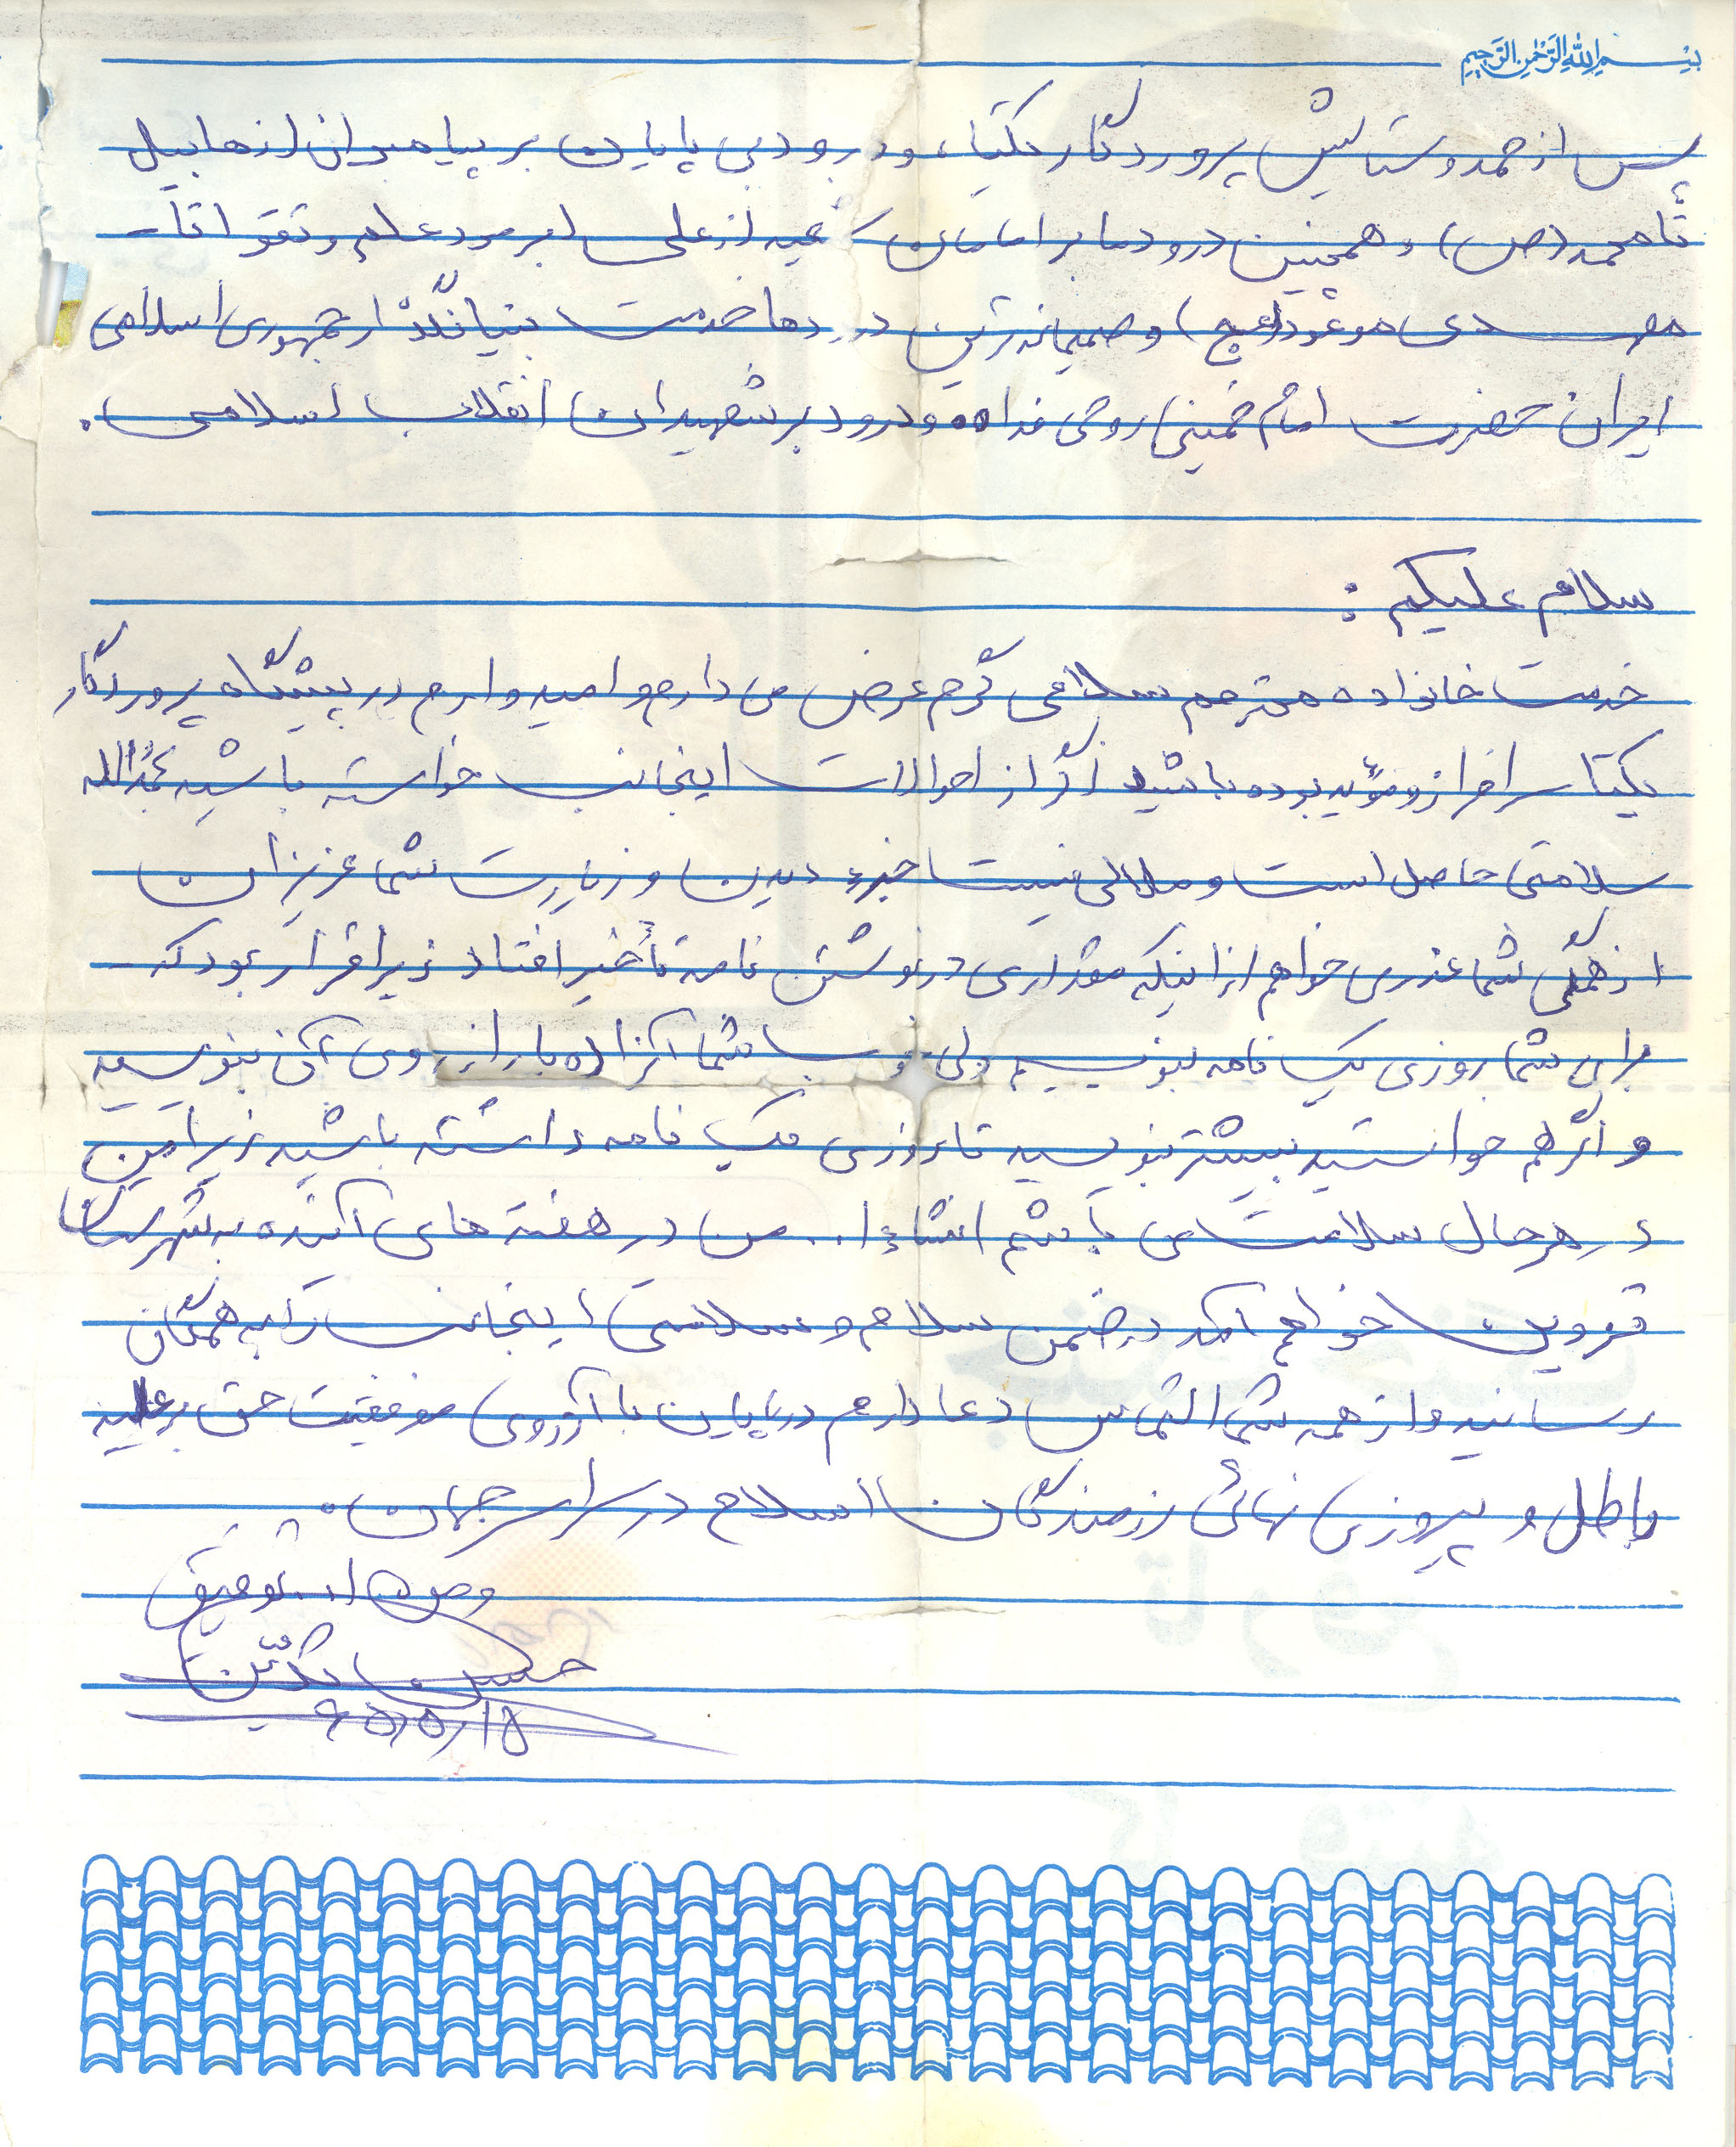 بسم الله الرحمن الرحیم
پس از حمد و ستایش پروردگار یکتا، و درود بی پایان بر پیامبران از هابیل
تا محمد (ص) و همچنین درود ما بر امامان شیعه از علی ابر مرد علم و تقوا تا
مهدی موعود (عج) و صمیمانه ترین درودها خدمت بنیانگذار جمهوری اسلامی
ایران حضرت امام خمینی روحی فداه و درود بر شهیدان انقلاب اسلامی.
سلام علیکم:
خدمت خانواده محترم سلامی گرم عرض می دارم و امیدوارم در پیشگاه پروردگار
یکتا سرافراز و مؤید بوده باشید اگر از احوالات اینجانب خواسته باشید بحمدالله
سلامتی حاصل است و ملالی نیست جزء دیدن و زیارت شما عزیزان
از همگی شما عذر می خواهم از اینکه مقداری در نوشتن نامه تأخیر افتاد زیرا قرار بود که
برای شما روزی یک نامه بنویسیم ولی شما از روی آن بنویسید
و اگر هم خواستید بیشتر بنویسید تا روزی یک نامه داشته باشید زیرا من
در هرحال سلامت می باشم انشاءا... من در هفته های آینده به شهرستان
قزوین خواهم آمد در ضمن سلام و سلامتی اینجانب را به همگان
رسانید و از همه شما التماس دعا دارم در پایان با آرزوی موفقیت حق بر علیه
باطل و پیروزی نهائی رزمندگان اسلام در سراسر جهان.
و من ا... توفیق
حسن
۶۵/۵/۱۵